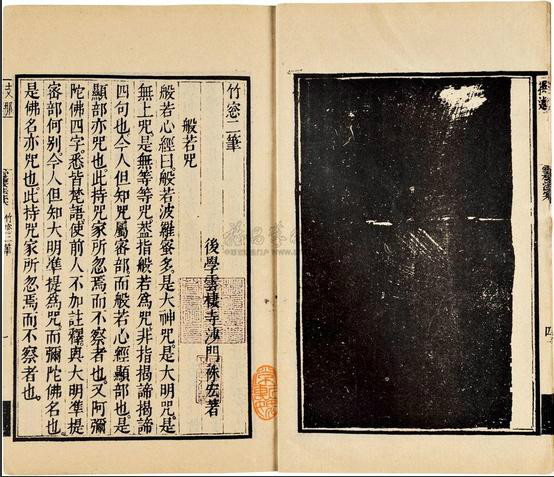 竹窓二筆
後學雲棲寺沙門袾宏著
般若咒
般若心經曰般若波羅蜜多是大神咒是大明咒是
無上咒是無等等咒葢指般若爲咒非指揭諦揭諦
四句也今人但知咒屬密部而般若心經顯部也是
顯部亦咒也此持咒家所忽焉而不察者也又阿彌
陀佛四字悉皆梵語使前人不加註釋與大明準提
密部何别今人但知大明準提爲咒而彌陀佛名也
是佛名亦咒也此持咒家所忽焉而不察者也
支那
竹窓二筆
一
四